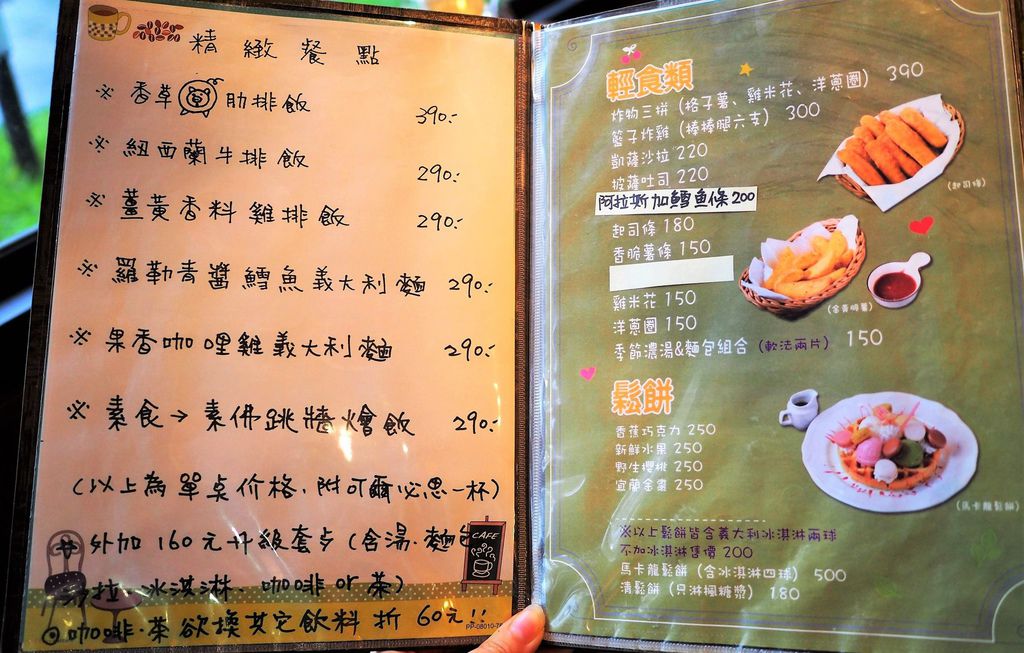 精緻餐點
※ 香草豬肋排飯 390.-
※ 紐西蘭牛排飯 290.-
※ 薑黃香料雞排飯 290.-
※ 羅勒青醬鱈魚義大利麵 290.-
※ 果香咖哩雞義大利麵 290.-
※ 素食→素佛跳牆燴飯 290.-
(以上為單点价格.附可爾必思一杯)
外加160元升級套歺(含湯.麵包
沙拉.冰淇淋.咖啡or茶)
◎咖啡.茶欲換其它飲料折60元!!
CAFE
PP-08010-7
輕食類
炸物三拼 (格子薯、雞米花、洋蔥圈) 390
籃子炸雞 (棒棒腿六支) 300
凱薩沙拉 220
披薩吐司 220
阿拉斯加鱈魚條 200
起司條 180
香脆薯條 150
雞米花 150
洋蔥圈 150
季節濃湯&麵包組合 (軟法兩片) 150
(起司條)
(香脆薯)
鬆餅
香蕉巧克力 250
新鮮水果 250
野生櫻桃 250
宜蘭金棗 250
(馬卡龍鬆餅)
※以上鬆餅皆含義大利冰淇淋兩球
不加冰淇淋售價 200
馬卡龍鬆餅 (含冰淇淋四球) 500
清鬆餅 (只淋楓糖漿) 180